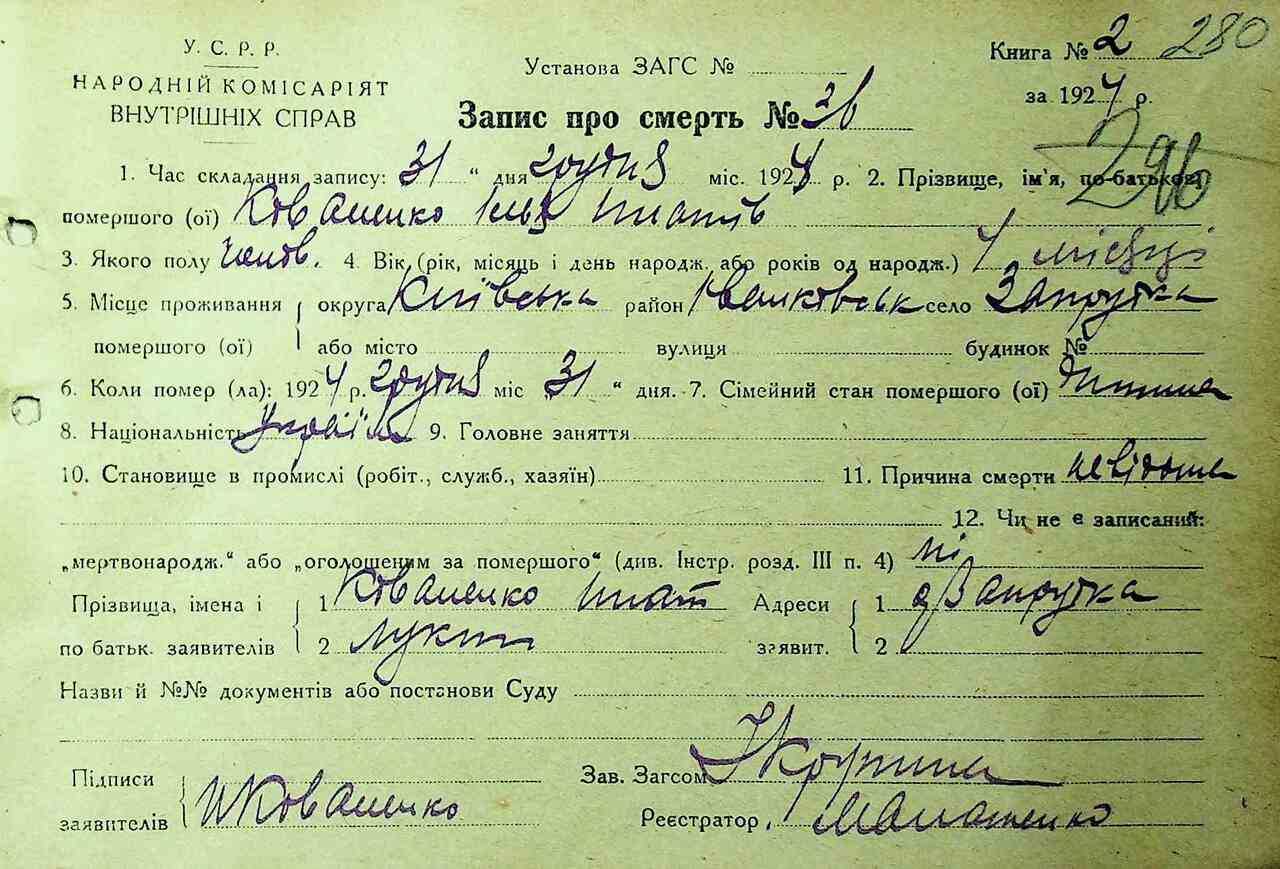 У. С. Р. Р.
НАРОДНІЙ КОМІСАРІЯТ
ВНУТРІШНІХ СПРАВ
Установа ЗАГС №
Книга № 2 280
за 1924 р.
Запис про смерть №
296
1. Час складання запису: 31 " дня грудня міс. 1924 р. 2. Прізвище, ім'я, по-батькові
помершого (ої) Коваленко Ігнатів
3. Якого полу чолов. 4. Вік (рік, місяць і день народж. або років од народж.) 4 місяці
5. Місце проживання округа Київська район село Запрудка
помершого (ої) або місто вулиця будинок №
6. Коли помер (ла): 1924 р. грудня міс „31 " дня. 7. Сімейний стан помершого (ої)
8. Національність україн 9. Головне заняття
10. Становище в промислі (робіт., служб., хазяїн) 11. Причина смерти невідома
12. Чи не є записаний:
„мертвонародж." або „оголошеним за помершого" (див. Інстр. розд. III п. 4) ні
Прізвища, імена і 1 Коваленко Ігнат Адреси 1 Запрудка
по батьк. заявителів 2 заявит. 2
Назви й №№ документів або постанови Суду
Підписи
заявителів Коваленко
Зав. Загсом
Реєстратор